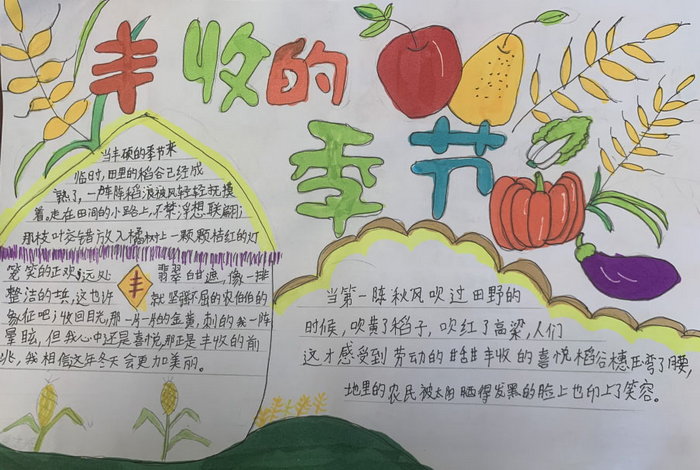 丰收的
季节
当丰硕的季节来
临时,田里的稻谷已经成
熟了,一阵阵稻浪被风轻轻抚摸
着,走在田间的小路上,不禁浮想联翩;
那枝叶交错放入橘树上一颗颗桔红的灯
笼笑的正欢,远处
丰
翡翠甘蔗,像一排
整洁的士兵,这也许
就坚强不屈的农伯伯的
象征吧;收回目光,那一片片的金黄,刺的我一阵
晕眩,但我心中还是喜悦,那正是丰收的前
兆,我相信这年冬天会更加美丽。
当第一阵秋风吹过田野的
时候,吹黄了稻子,吹红了高粱,人们
这才感受到劳动的甜甜丰收的喜悦稻谷穗压弯了腰,
地里的农民被太阳晒得发黑的脸上也印上了笑容。